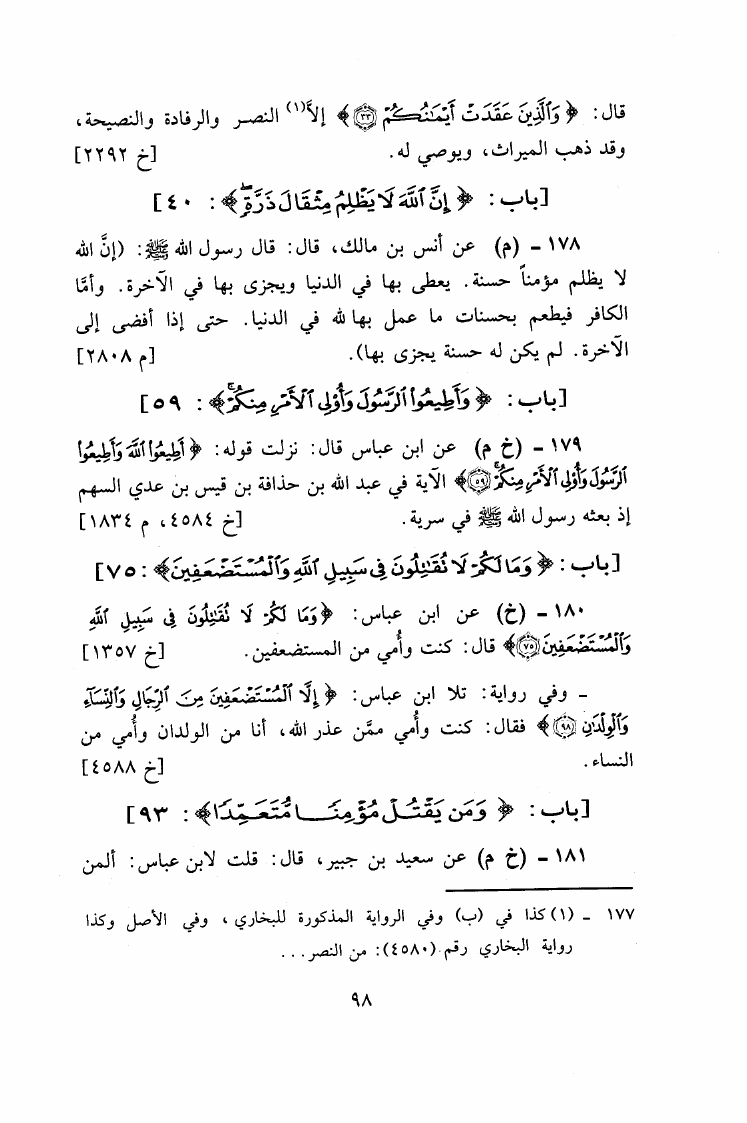 قال: ﴿ وَالَّذِينَ عَقَدَتْ أَيْمَانُكُمْ ۝٣٣ ﴾ إلاَّ(١) النصر والرفادة والنصيحة،
وقد ذهب الميراث، ويوصي له. [خ ٢٢٩٢]
[باب: ﴿ إِنَّ اللَّهَ لَا يَظْلِمُ مِثْقَالَ ذَرَّةٍ ﴾: ٤٠]
١٧٨ ـ (م) عن أنس بن مالك، قال: قال رسول الله ﷺ: (إنَّ الله
لا يظلم مؤمناً حسنة. يعطى بها في الدنيا ويجزى بها في الآخرة. وأمَّا
الكافر فيطعم بحسنات ما عمل بها لله في الدنيا. حتى إذا أفضى إلى
الآخرة. لم يكن له حسنة يجزى بها). [م ٢٨٠٨]
[باب: ﴿ وَأَطِيعُوا الرَّسُولَ وَأُولِي الْأَمْرِ مِنكُمْ ﴾: ٥٩]
١٧٩ ـ (خ م) عن ابن عباس قال: نزلت قوله: ﴿ أَطِيعُوا اللَّهَ وَأَطِيعُوا
الرَّسُولَ وَأُولِي الْأَمْرِ مِنكُمْ ۝٥٩ ﴾ الآية في عبد الله بن حذافة بن قيس بن عدي السهم
إذ بعثه رسول الله ﷺ في سرية. [خ ٤٥٨٤، م ١٨٣٤]
[باب: ﴿ وَمَا لَكُمْ لَا تُقَاتِلُونَ فِي سَبِيلِ اللَّهِ وَالْمُسْتَضْعَفِينَ ﴾: ٧٥]
١٨٠ ـ (خ) عن ابن عباس: ﴿ وَمَا لَكُمْ لَا تُقَاتِلُونَ فِي سَبِيلِ اللَّهِ
وَالْمُسْتَضْعَفِينَ ۝٧٥ ﴾ قال: كنت وأُمي من المستضعفين. [خ ١٣٥٧]
ـ وفي رواية: تلا ابن عباس: ﴿ إِلَّا الْمُسْتَضْعَفِينَ مِنَ الرِّجَالِ وَالنِّسَاءِ
وَالْوِلْدَانِ ۝٩٨ ﴾ فقال: كنت وأُمي ممَّن عذر الله، أنا من الولدان وأُمي من
النساء. [خ ٤٥٨٨]
[باب: ﴿ وَمَن يَقْتُلْ مُؤْمِنًا مُّتَعَمِّدًا ﴾: ٩٣]
١٨١ ـ (خ م) عن سعيد بن جبير، قال: قلت لابن عباس: ألمن
١٧٧ ـ (١) كذا في (ب) وفي الرواية المذكورة للبخاري، وفي الأصل وكذا
رواية البخاري رقم (٤٥٨٠): من النصر...
٩٨